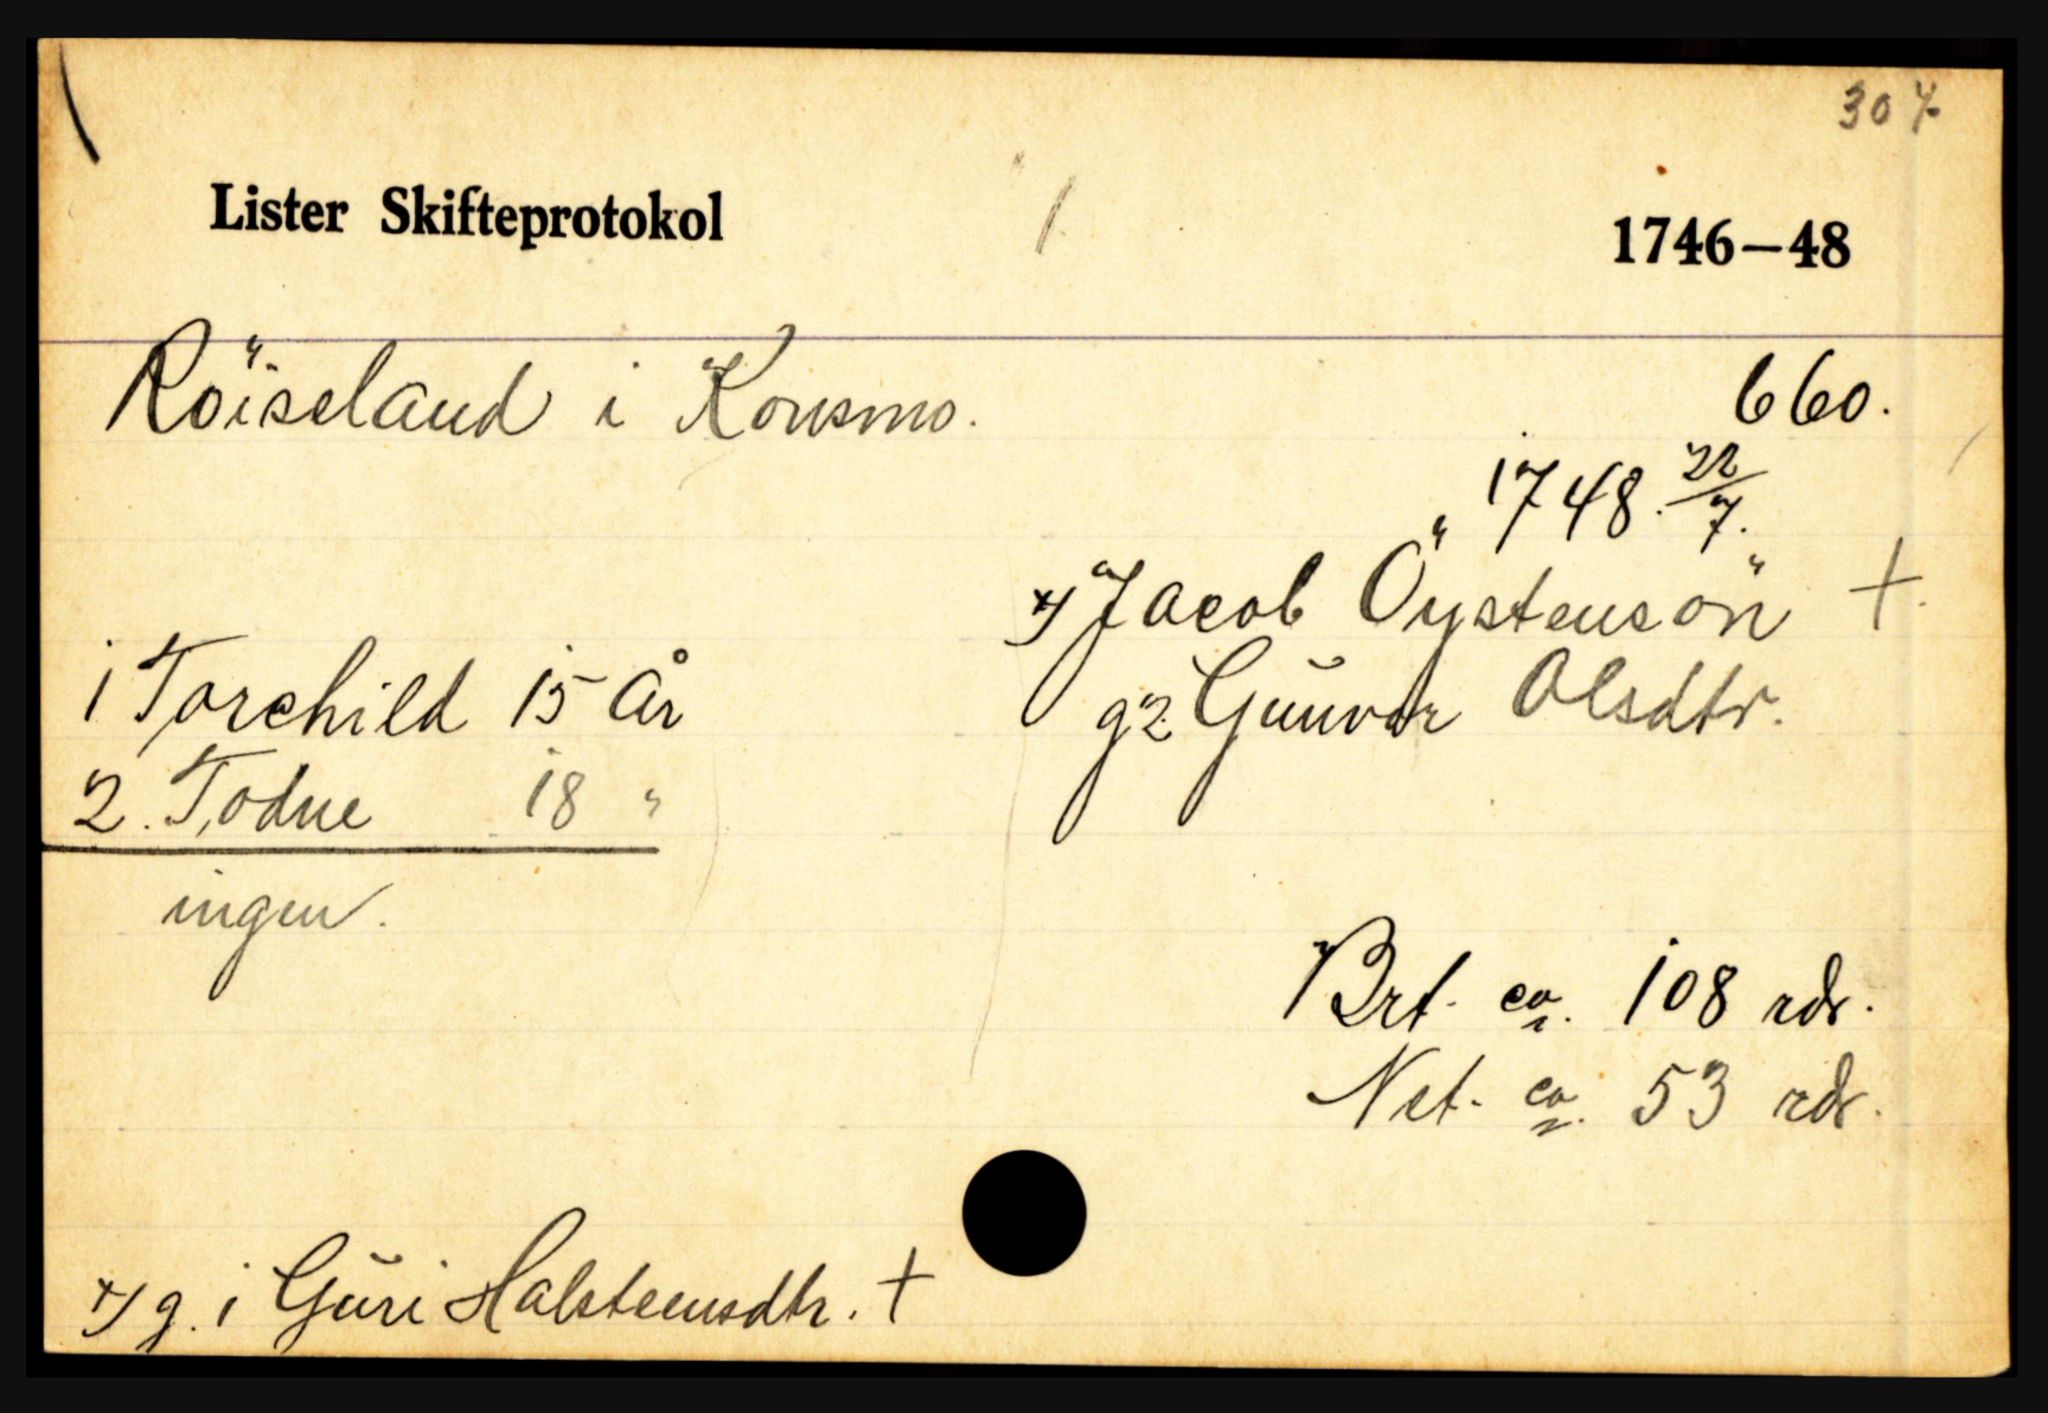 307.
Lister Skifteprotokol 1746–48
Röiseland i Konsmo. 660.
1748. 22/7.
x/ Jacob Öystensön +.
1 Torchild 15 År g2. Gunvor Olsdtr.
2. Todne 18 "
ingen.
Brt. ca. 108 rdr.
Net. ca. 53 rdr.
x/ g. 1 Guri Halsteensdtr. +